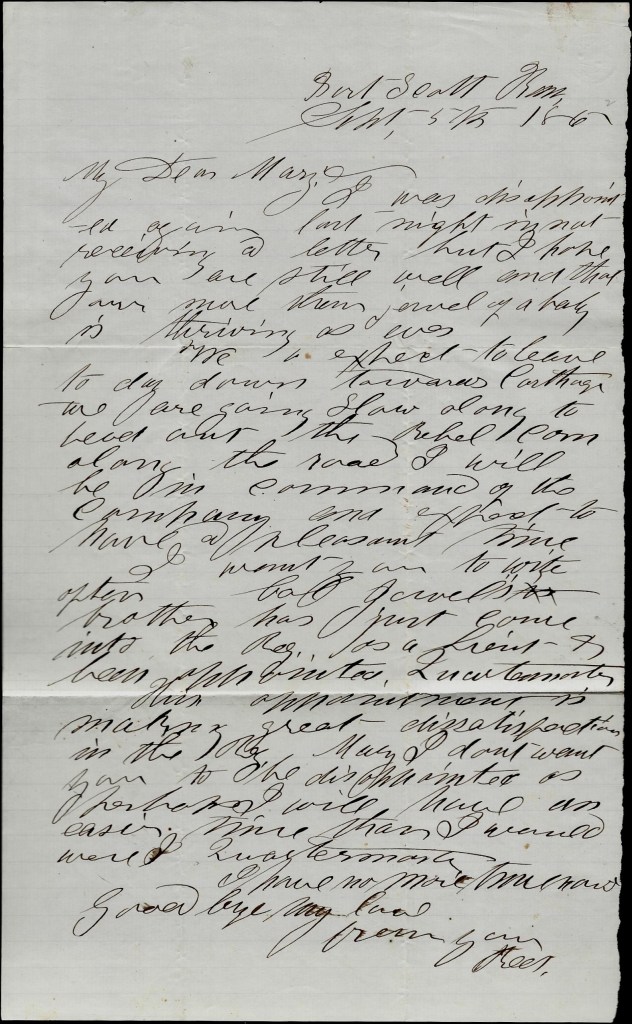 Fort Scott Kan
Sept, 5th 186
My Dear Mary,
I was disappoint
-ed again last night in not
receiving a letter but I hope
you are still well and that
your more then jewel of a baby
is thriving as ever
We expect to leave
to day down towards Carthage
we are going slow along to
the Rebel corn
along the road I will
be in command of the
Company and expect to
have a pleasant time
I want you to write
often Col Jewell's
brother has just come
into the Reg. as a Lieut &
been appointed Quartermaster
This appointment is
making great dissatisfaction
in the Reg Mary I dont want
you to be disappointed as
perhaps I will have an
easier time than I would
were I Quartermaster
I have no more time now
Good bye my love
from your